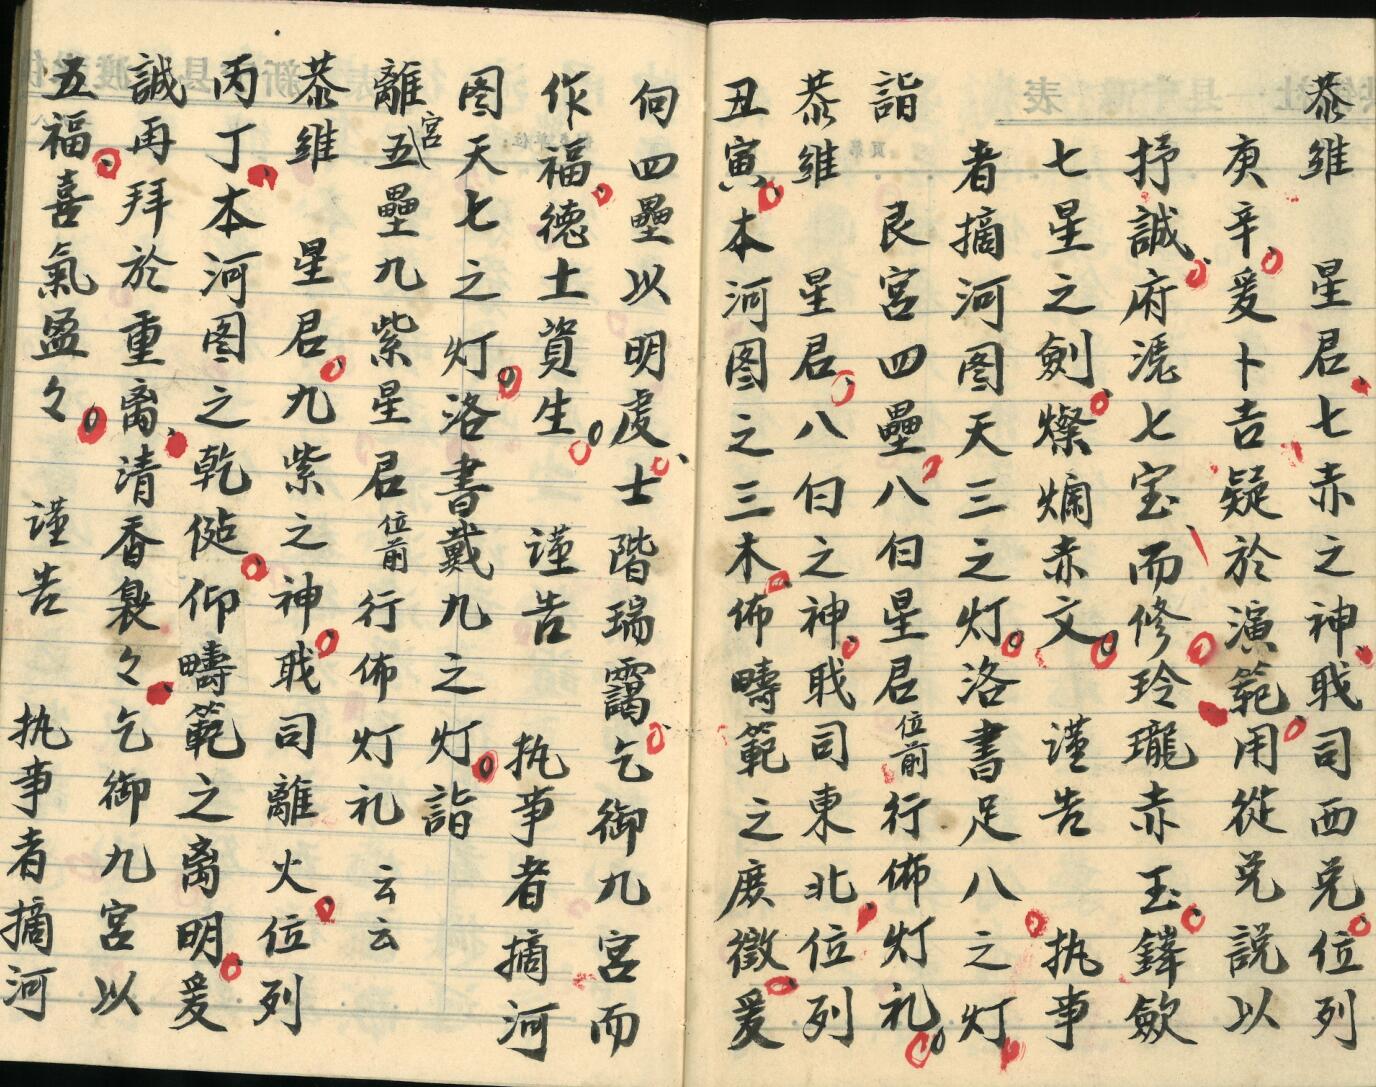 恭維　星君七赤之神戝司西兑位列
庚辛爰卜吉疑於演範用從兑説以
抒誠府澆七宝而修玲瓏赤玉鐸歛
七星之劍燦爛赤文　謹告　执事
者摘河图天三之灯洛書足八之灯
詣　艮宮四壘八白星君位前行佈灯礼
恭維　星君八白之神戝司東北位列
丑寅本河图之三木佈疇範之庶徵爰
向四壘以明虔士階瑞靄乞御九宮而
作福德土資生　謹告　执事者摘河
图天七之灯洛書戴九之灯詣
離宮五壘九紫星君位前行佈灯礼　云云
恭維　星君九紫之神戝司離火位列
丙丁本河图之乾㐌仰疇範之离明爰
誠再拜於重离清香裊々乞御九宮以
五福喜氣盈々　謹告　执事者摘河